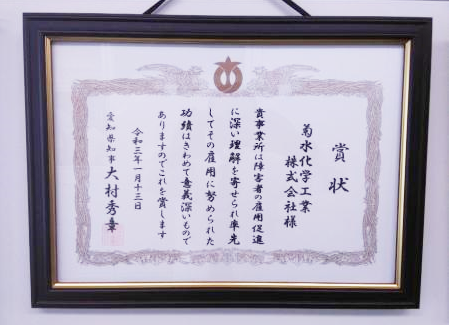 賞状
菊水化学工業
株式会社様
貴事業所は障害者の雇用促進
に深い理解を寄せられ率先
してその雇用に努められた
功績はきわめて意義深いもので
ありますのでこれを賞します
令和三年一月十三日
愛知県知事 大村秀章